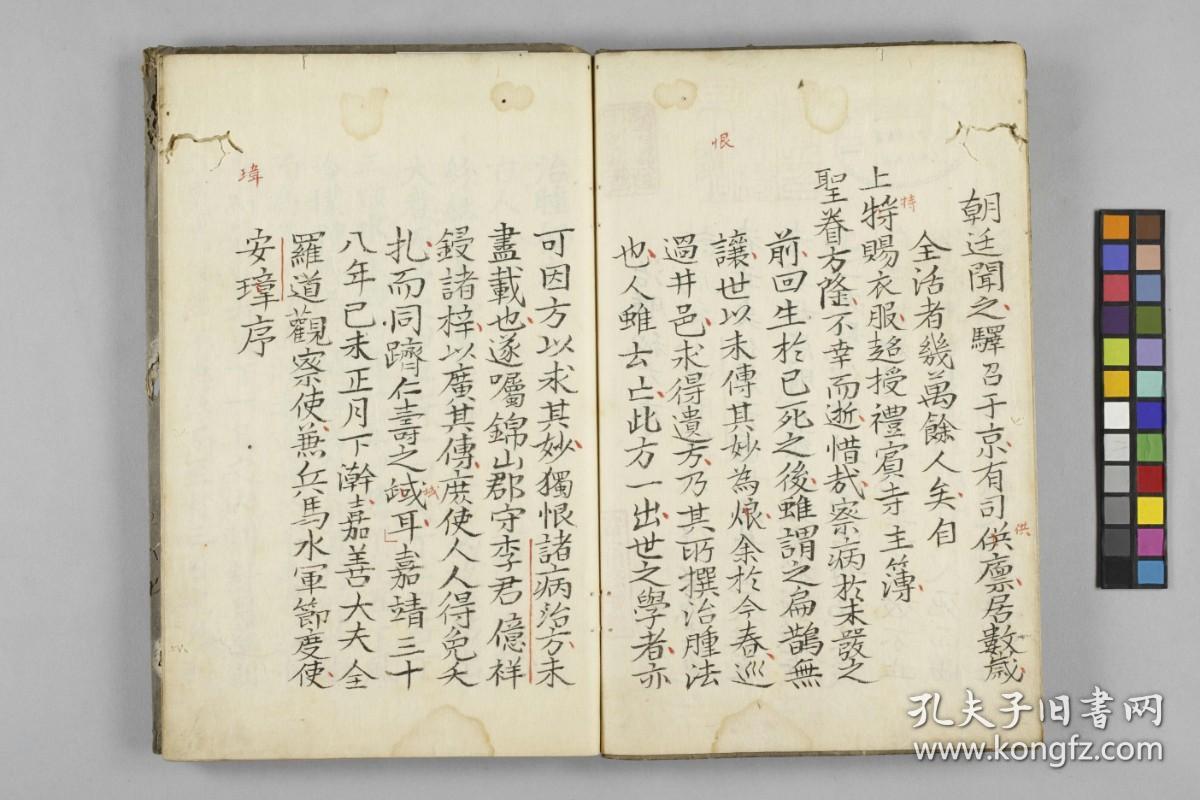 朝廷聞之驛召于京有司供廩居數歲
供
全活者幾萬餘人矣自
上特賜衣服超授禮賓寺主簿
特
聖眷方隆不幸而逝惜哉察病於未發之
前回生於已死之後雖謂之扁鵲無
讓世以未傳其妙為烺余於今春巡
恨
過井邑求得遺方乃其所撰治腫法
也人雖去亡此方一出世之學者亦
可因方以求其妙獨恨諸病治方未
盡載也遂囑錦山郡守李君億祥
鋟諸梓以廣其傳庶使人人得免夭
扎而同躋仁壽之域耳嘉靖三十
域
八年已未正月下澣嘉善大夫全
羅道觀察使兼兵馬水軍節度使
安璋序
瑋
孔夫子旧書网
www.kongfz.com